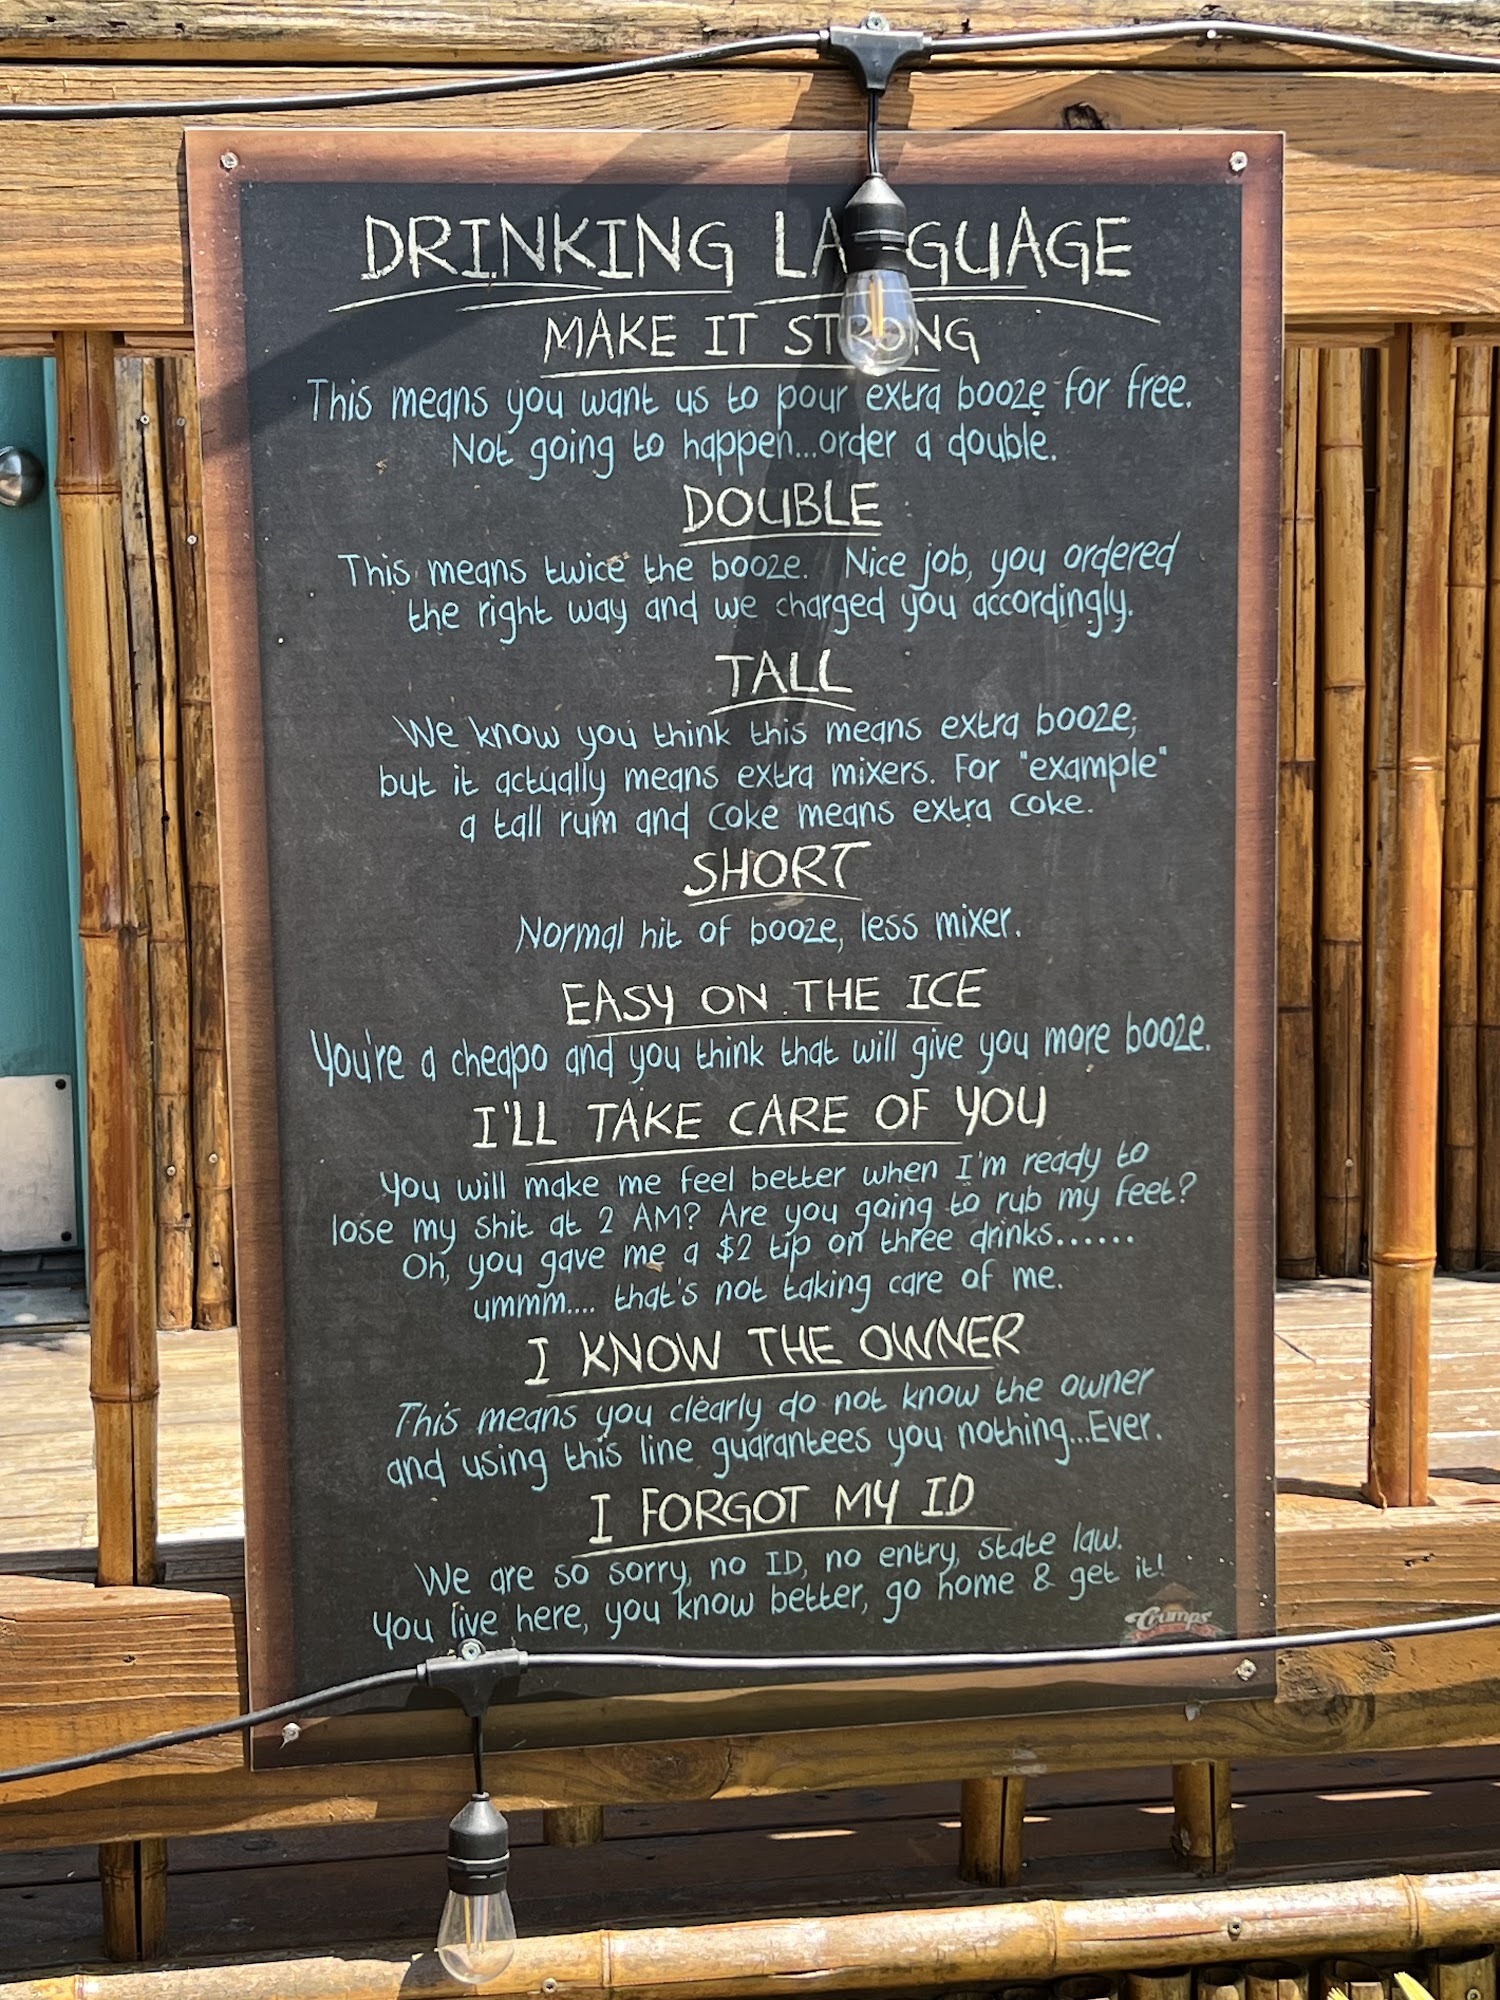 DRINKING LANGUAGE
MAKE IT STRONG
This means you want us to pour extra booze for free.
Not going to happen...order a double.
DOUBLE
This means twice the booze. Nice job, you ordered
the right way and we charged you accordingly.
TALL
We know you think this means extra booze,
but it actually means extra mixers. For "example"
a tall rum and coke means extra coke.
SHORT
Normal hit of booze, less mixer.
EASY ON THE ICE
You're a cheapo and you think that will give you more booze.
I'LL TAKE CARE OF YOU
You will make me feel better when I'm ready to
lose my shit at 2 AM? Are you going to rub my feet?
Oh, you gave me a $2 tip on three drinks......
ummm.... that's not taking care of me.
I KNOW THE OWNER
This means you clearly do not know the owner
and using this line guarantees you nothing...Ever.
I FORGOT MY ID
We are so sorry, no ID, no entry, state law.
You live here, you know better, go home & get it!
Crumps